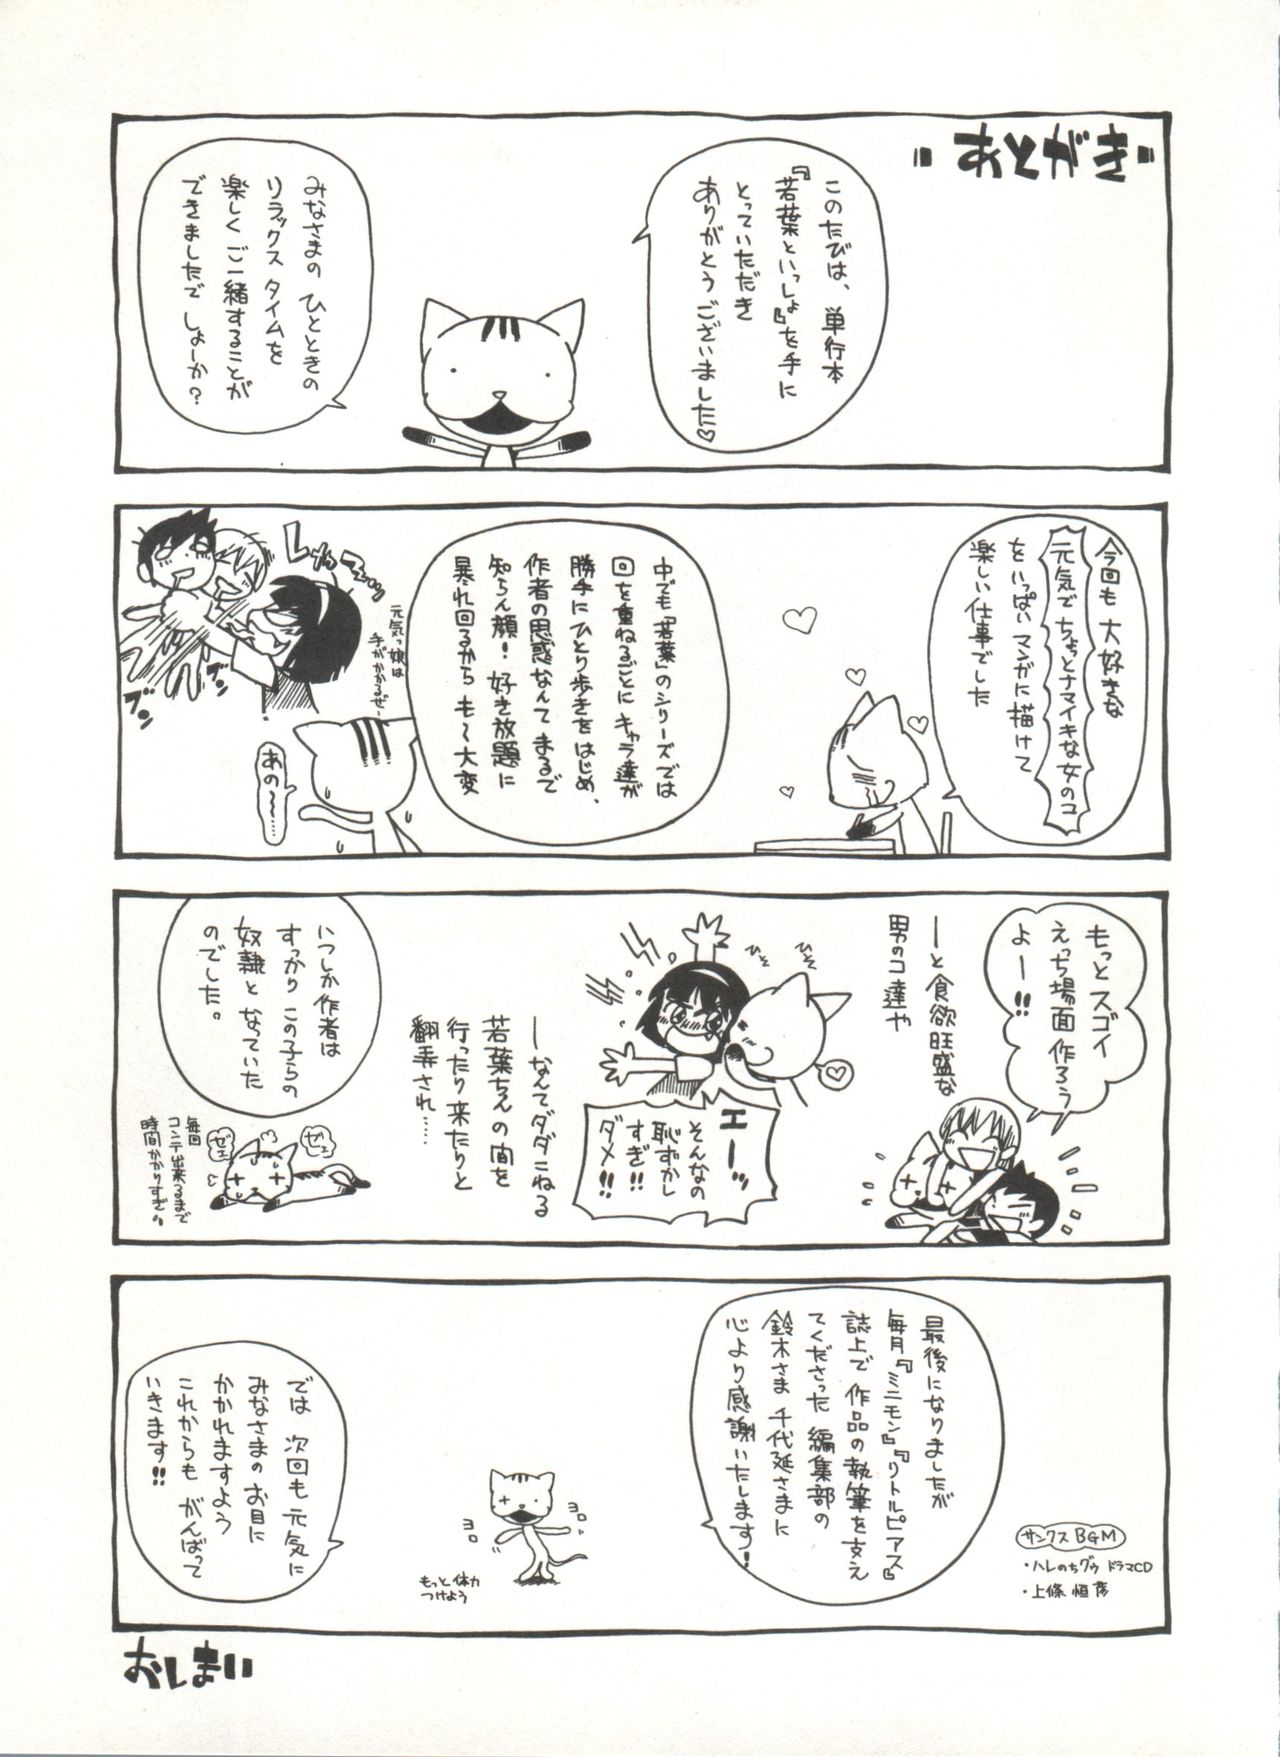 "あとがき"
このたびは、単行本
『若葉といっしょ』を手に
とっていただき
ありがとうございました♡
みなさまの ひとときの
リラックス タイムを
楽しく ご一緒することが
できましたで しょーか?
今回も 大好きな
元気で ちょっとナマイキな 女のコ
を いっぱい マンガに 描けて
楽しい 仕事でした
中でも「若葉」のシリーズでは
回を重ねるごとに キャラ達が
勝手に ひとり歩きをはじめ、
作者の思惑なんて まるで
知らん顔! 好き放題に
暴れ回るから も〜大変
元気っ娘は
手がかかるぜ-
ブンッ
ブンッ
あの〜……
もっとスゴイ
えっち場面 作ろう
よー!!
ーーと食欲旺盛な
男のコ達や
ひそ
ひそ
エーッ
そんなの
恥ずかし
すぎ!!
ダメ!!
ーーなんてダダこねる
若葉ちんの間を
行ったり来たりと
翻弄され……
いつしか作者は
すっかり この子らの
奴隷と なっていた
のでした。
ゼェ
ゼェ
毎回
コンテ出来るまで
時間かかりすぎ〃
最後になりましたが
毎月『ミニモン』『リトルピアス』
誌上で 作品の執筆を支え
てくださった 編集部の
鈴木さま 千代延さまに
心より感謝いたします!
サンクス BGM
・ハレのちグゥ ドラマCD
・上條 恒彦
ヨロ
ヨロ
もっと体力
つけよう
では 次回も 元気に
みなさまの お目に
かかれますよう
これからも がんばって
いきます!!
おしまい